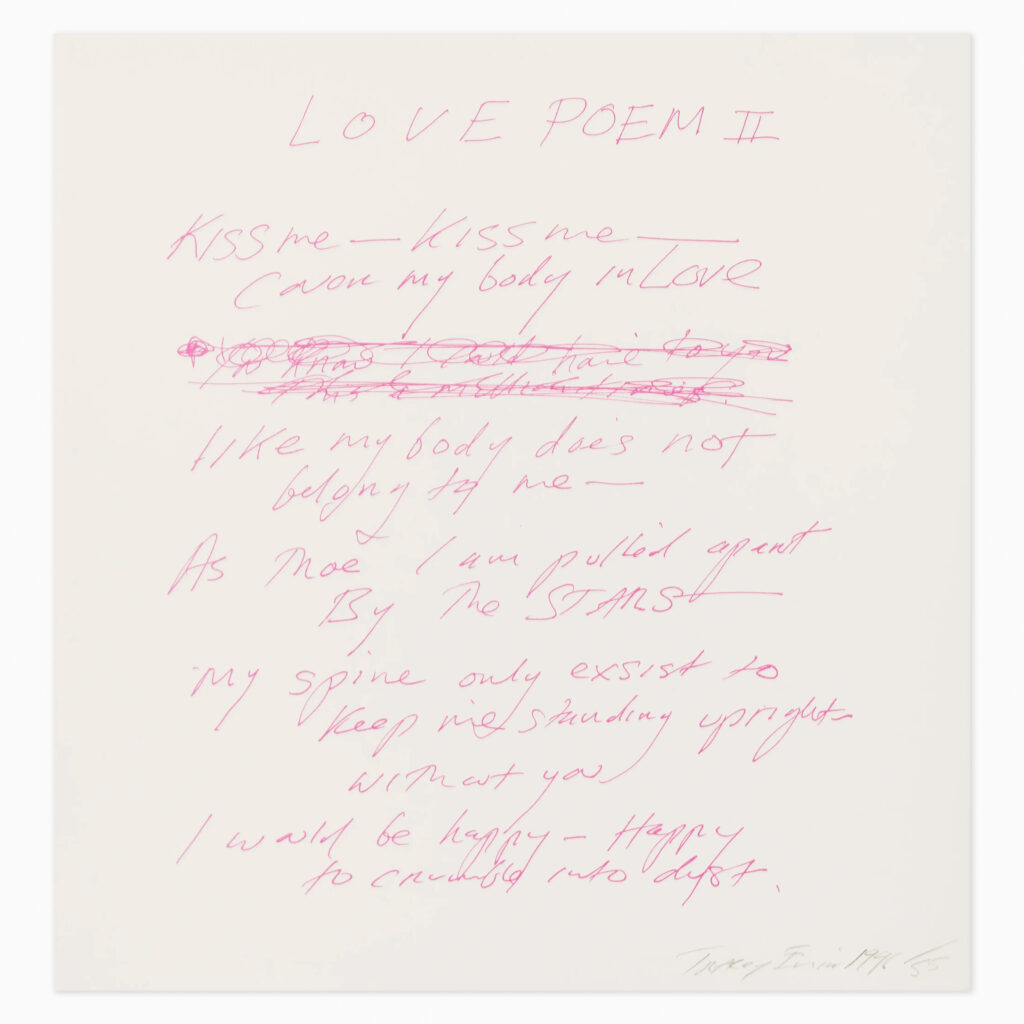 LOVE POEM II
Kiss me — Kiss me —
Cover my body in Love
like my body does not
belong to me —
As Thoe I am pulled apart
By The STARS —
My spine only exsist to
Keep me standing upright -
without you
I would be happy - Happy
to crumble into dust.
Tracey Emin 1996